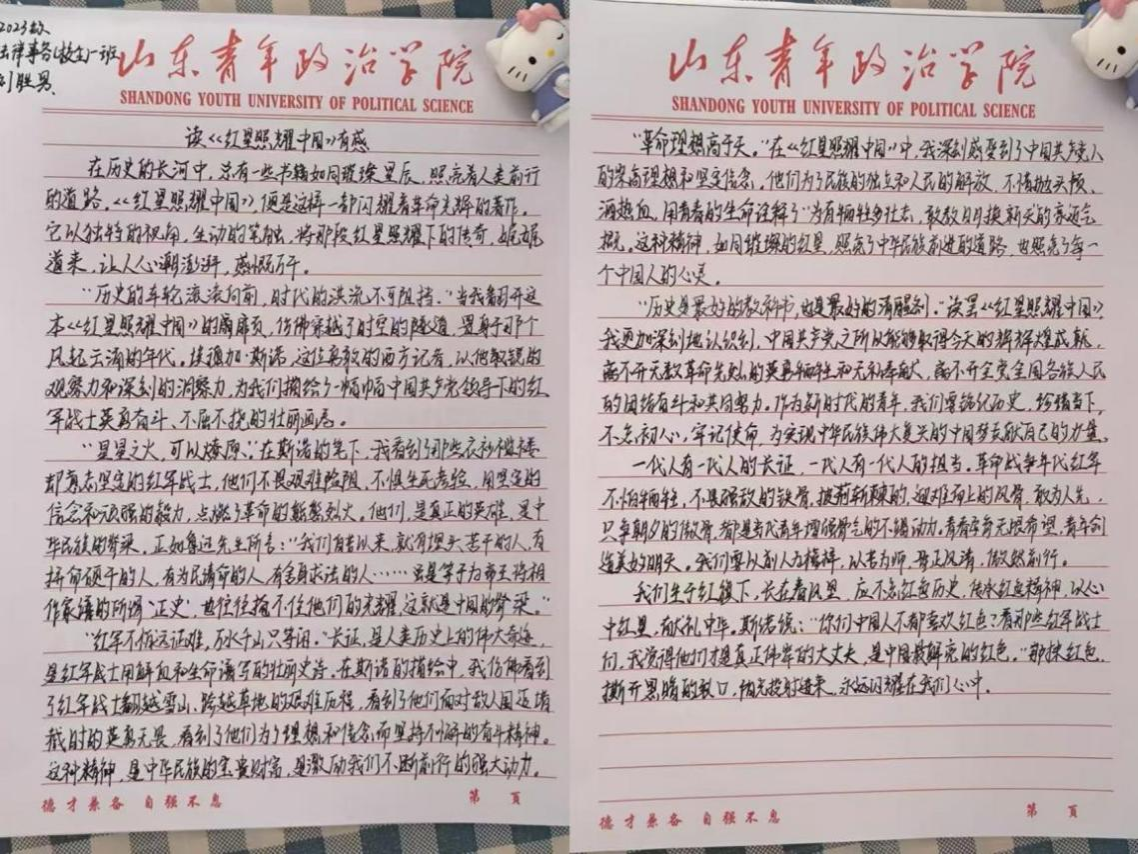 2023级
法律事务(校企)一班
刘胜男
山东青年政治学院
SHANDONG YOUTH UNIVERSITY OF POLITICAL SCIENCE
读《红星照耀中国》有感
在历史的长河中，总有一些书籍如同璀璨星辰，照亮着人类前行
的道路。《红星照耀中国》，便是这样一部闪耀着革命光辉的著作。
它以独特的视角，生动的笔触，将那段红星照耀下的传奇，娓娓
道来，让人心潮澎湃，感慨万千。
“历史的车轮滚滚向前，时代的洪流不可阻挡。”当我翻开这
本《红星照耀中国》的扉页，仿佛穿越了时空的隧道，置身于那个
风起云涌的年代。埃德加·斯诺，这位勇敢的西方记者，以他敏锐的
观察力和深刻的洞察力，为我们描绘了一幅幅中国共产党领导下的红
军战士英勇奋斗、不屈不挠的壮丽画卷。
“星星之火，可以燎原。”在斯诺的笔下，我看到了那些衣衫褴褛
却意志坚定的红军战士，他们不畏艰难险阻，不惧生死考验，用坚定的
信念和顽强的毅力，点燃了革命的熊熊烈火。他们，是真正的英雄，是中
华民族的脊梁。正如鲁迅先生所言：“我们自古以来，就有埋头苦干的人，有
拼命硬干的人，有为民请命的人，有舍身求法的人……虽是等于为帝王将相
作家谱的所谓‘正史’，也往往掩不住他们的光耀，这就是中国的脊梁。”
“红军不怕远征难，万水千山只等闲。”长征，是人类历史上的伟大奇迹，
是红军战士用鲜血和生命谱写的壮丽史诗。在斯诺的描绘中，我仿佛看到
了红军战士翻越雪山、跨越草地的艰难历程，看到了他们面对敌人围追堵
截时的英勇无畏，看到了他们为了理想和信念而坚持不懈的奋斗精神。
这种精神，是中华民族的宝贵财富，是激励我们不断前行的强大动力。
德才兼备 自强不息
第 页
山东青年政治学院
SHANDONG YOUTH UNIVERSITY OF POLITICAL SCIENCE
“革命理想高于天。”在《红星照耀中国》中，我深刻感受到了中国共产党人
的崇高理想和坚定信念。他们为了民族的独立和人民的解放，不惜抛头颅、
洒热血，用青春的生命诠释了“为有牺牲多壮志，敢教日月换新天”的豪迈气
概。这种精神，如同璀璨的红星，照亮了中华民族前进的道路，也照亮了每一
个中国人的心灵。
“历史是最好的教科书，也是最好的清醒剂。”读罢《红星照耀中国》
我更加深刻地认识到，中国共产党之所以能够取得今天的辉煌成就，
离不开无数革命先烈的英勇牺牲和无私奉献，离不开全党全国各族人民
的团结奋斗和共同努力。作为新时代的青年，我们要铭记历史，珍惜当下，
不忘初心，牢记使命，为实现中华民族伟大复兴的中国梦贡献自己的力量。
一代人有一代人的长征，一代人有一代人的担当。革命战争年代红军
不怕牺牲，不畏强敌的铁骨，披荆斩棘的，迎难而上的风骨，敢为人先，
只争朝夕的傲骨，都是当代青年增强骨气的不竭动力。青春孕育无限希望，青年创
造美好明天。我们要以前人为榜样，以苦为师，骨正风清，傲然前行。
我们生于红旗下，长在春风里，应不忘红色历史，传承红色精神，以心
中红星，献礼中华。斯诺说：“你们中国人不都喜欢红色？看那些红军战士
们，我觉得他们才是真正伟岸的大丈夫，是中国最鲜亮的红色。”那抹红色，
撕开黑暗的裂口，阳光投射进来，永远闪耀在我们心中。
德才兼备 自强不息
第 页